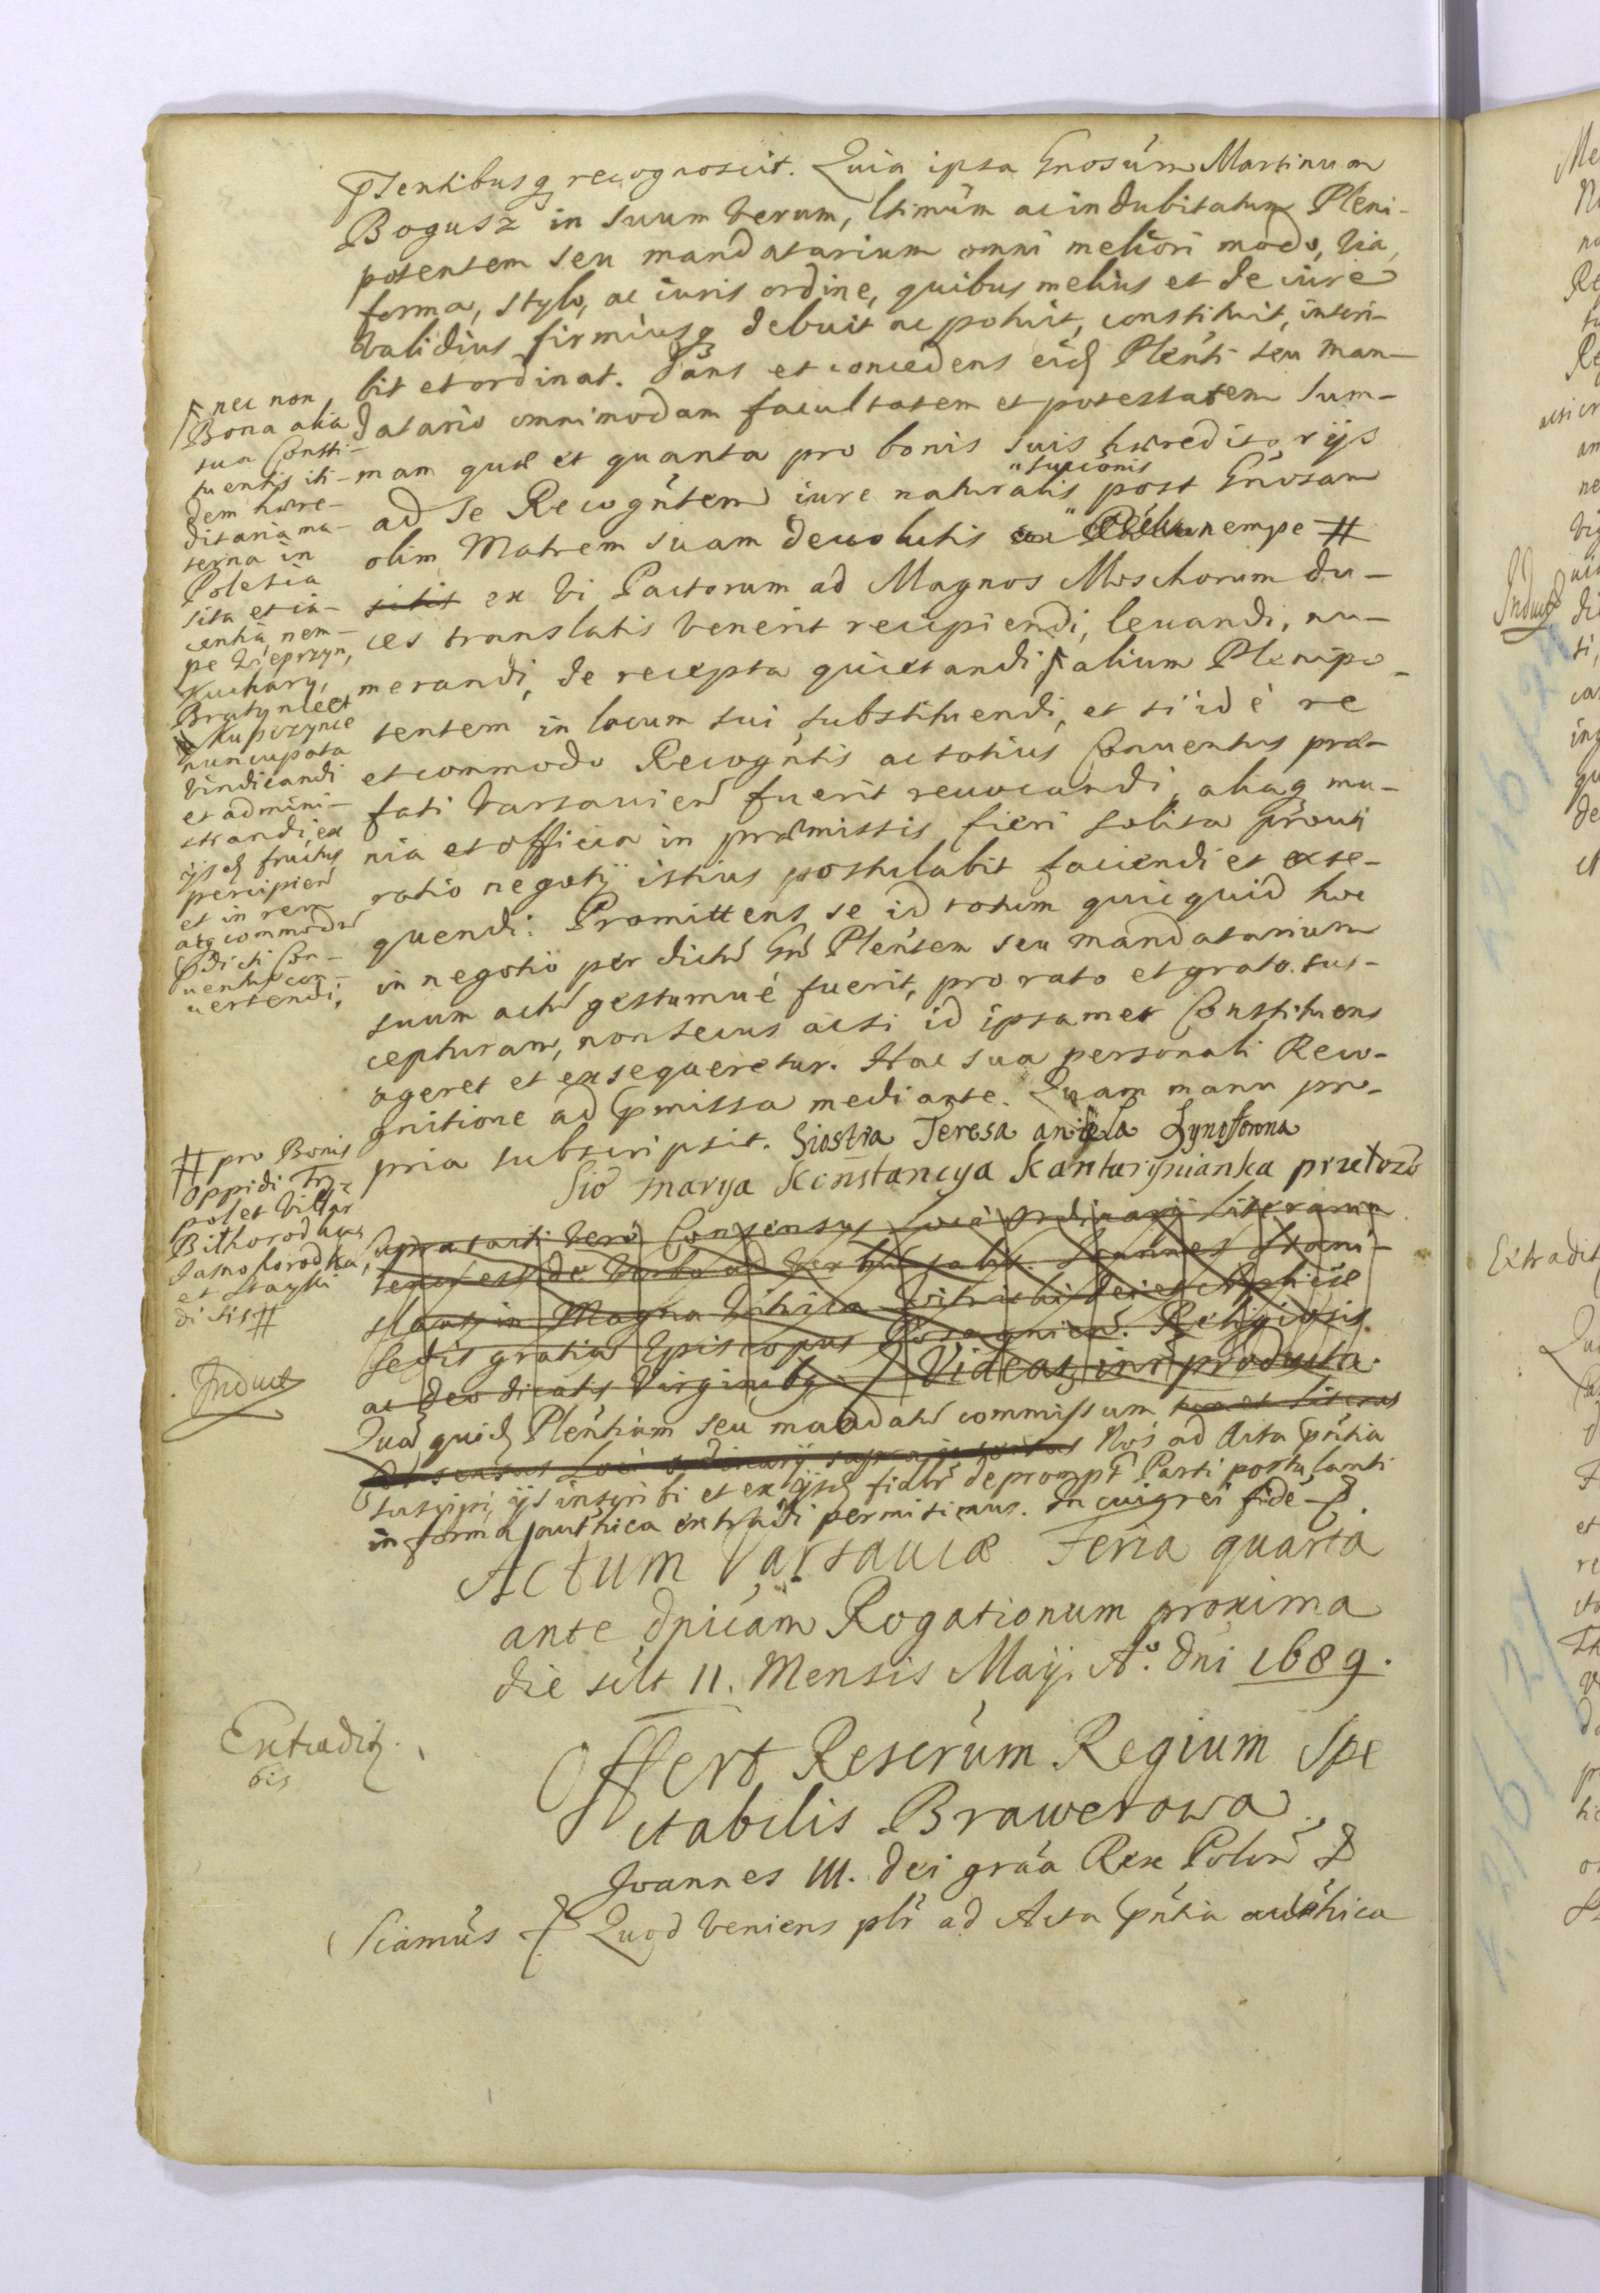 pntibusq recognoscit. Quia ipsa Gnosum Martinum
Bogusz in suum verum, ltimum ac indubitatum Pleni-
potentem seu mandatarium omni meliori modo, via,
forma, stylo, ac iuris ordine, quibus melius et de iure
validius firmiusq debuit ac potuit, constituit, inscri-
bit et ordinat. Dans et concedens eid Plenti seu man-
datario omnimodam facultatem et potestatem sum-
mam quæ et quanta pro bonis suis hæreditorijs
ad se Recognten iure naturalis succionis post Gnosam
olim Matrem suam deuolutis nempe #
sitis ex vi Pactorum ad Magnos Moschorum du-
ces translatis venerit recipiendi, leuandi, nu-
merandi, de recepta quietandi, alium Plenipo-
tentem in locum sui substituendi, et si id è re
et commodo Recogntis ac totius Conuentus præ-
fati Varsauien fuerit reuocandi, aliaq mu-
nia et officia in præmissis fieri solita prout
ratio negotij istius postulabit faciendi et exse-
quendi. Promittens se id totum quicquid hoc
in negotio per dictu Gn Plentem seu mandatarium
suum actu gestumué fuerit, pro rato et grato sus-
cepturam, non secus acsi id ipsamet Constituens
ageret et exsequeretur. Hac sua personali Reco-
gnitione ad pmissa mediante. Quam manu pro-
pria subscripsit. Siostra Teresa aniela
Sio marya Konstancya Kantarynianka przełozo
Suprascripti vero Consensus Loci Ordinarij literarum
tenor est de verbo ad verbu talis. Ioannes Stani-
slaus in Magna Witwica Witwicki Dei et Aplicæ
Sedis gratia Episcopus Posnanien. Religiosis
ac Deo dicatis Virginibq. Videatq inr producta.
Quod quid Plentiam seu mandatu commissum
Nos ad Acta pntia
suscipi, ijs inscribi et ex ijsd fidelr deprompt Parti postulanti
in forma authica extradi permisimus. In cuiq rei fide
Actum Varsauiæ Feria quarta
ante dnicam Rogationum proxima
die silt 11. Mensis Maij. A°. Dni 1689.
Offert Rescrum Regium Spe
ctabilis Brawerowa
Joannes III. Dei graa Rex Polon
Sciamus Quod veniens plr ad Acta pntia authica
nec non
Bona alia
sua Consti-
tuentis iti-
dem hære-
ditaria ma-
terna in
Polesia
sita et ia-
centia, nem-
pe Wieprzyn,
Kuchary,
Bratynice et
Kupczynce
nuncupata
vindicandi
et admini-
strandi ex
ijsd fructus
percipien
et in rem
atq commodu
pdicti Con-
uentus con-
uertendi,
# pro Bonis
Oppidi Try-
pol et villar
Bithorodka
Jasnohorodka,
et Stayki
di sis #
Induct
Extradit
bis